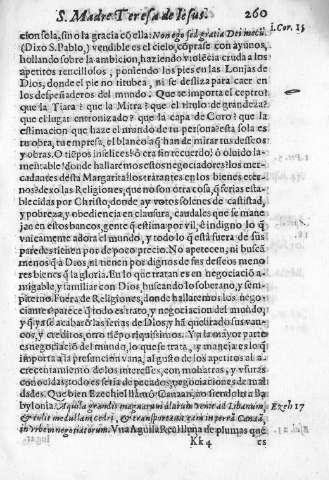 S. Madre Teresa de Iesus. 260
cion sola, sino la gracia cõ ella: Non ego sed gratia Dei mecũ 1. Cor. 15
(Dixo S. Pablo,) vendible es el cielo, cõprase con ayunos,
hollando sobre la ambicion, haziendo violẽcia cruda a los
apetitos renzillosos, poniendo los pies en las Lonjas de
Dios, donde el pie no titubea, ni se desliza para caer en
los despeñaderos del mundo. Que te importa el ceptro?
que la Tiara? que la Mitra? que el titulo de grandeza?
que el lugar entronizado? que la capa de Coro? que la
estimacion que haze el mundo de tu persona? esta sola es
tu obra, tu empresa, el blanco a q̃ han de mirar tus desseos
y obras. O tiẽpos infelices! ò era sin recuerdo! ò oluido la-
mentable! donde hallaremos estos negociadores? los mer-
cadantes desta Margarita? los tratantes en los bienes eter-
nos? dexo las Religiones, que no son otra cosa, q̃ ferias esta-
blecidas por Christo, donde ay votos solenes de castidad,
y pobreza, y obediencia en clausura, caudales que se mane
jan en estos bancos, gente q̃ estima por vil, è indigno lo q̃
vnicamente adora el mundo, y todo lo q̃ esta fuera de sus
paredes tienen por de poco precio. No apetecen, ni buscã
menos q̃ a Dios, ni tienen por dignos de sus desseos meno
res bienes q̃ la gloria. En lo que tratan es en negociaciõ a-
migable y familiar con Dios, buscando lo soberano, y sem-
piterno. Fuera de Religiones, donde hallaremos los nego-
ciantes? parece q̃ todo es trato, y negociacion del mundo,
y q̃ ya se acabarõ las ferias de Dios, y hã quebrado sus van-
cos, y creditos, otro tiẽpo riquissimos. Y a la mayor parte
es negociaciõ del mundo, lo que se trata, y maneja es lo q̃
importa a la presuncion vana, al gusto de los apetitos al a-
crecentamiento de los interesses, con mohatras, y vsuras
conocidas; todo es feria de pecados, negociaciones de mal
dades. Que bien Ezechiel llamò Canaan, no siendo la a Ba
bylonia: Aquila grandis magnarum alarum venit ad Libanum, Ezeh 17
& tulit medullam cedri, & transportauit eam in terrã Canaã,
in vrbem negotiatorum. Vna Aguila Real llena de plumas que
Kk 4 es